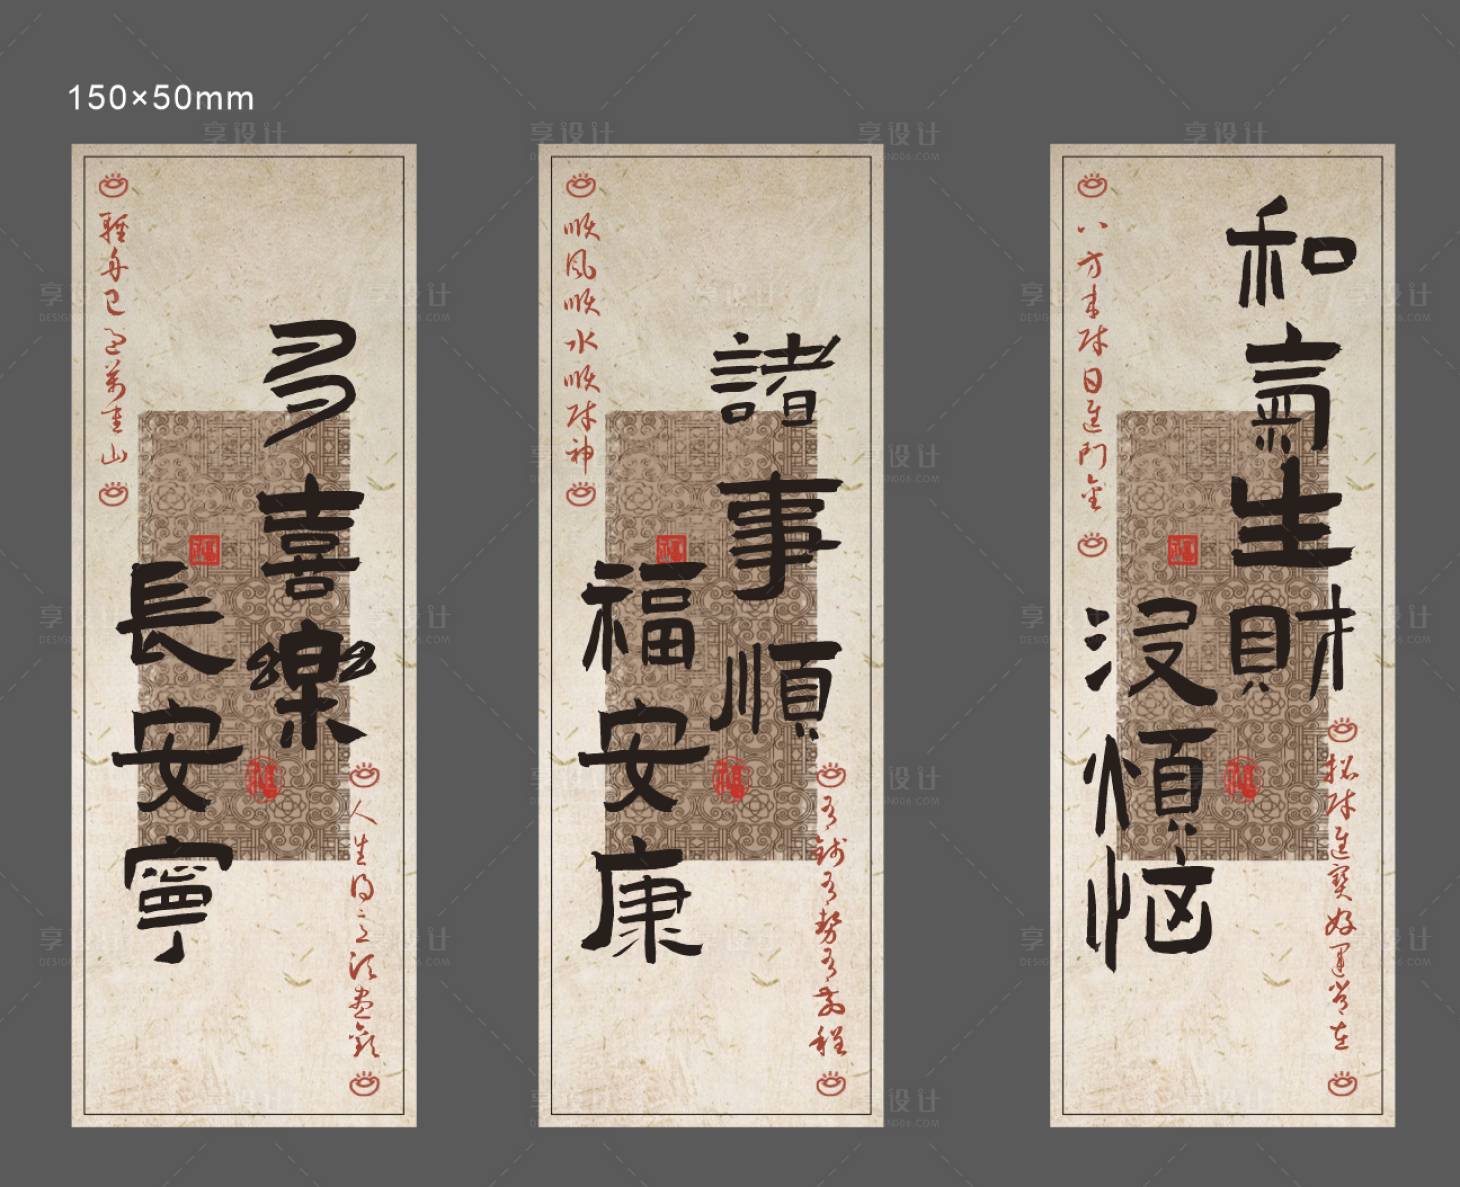 150×50mm
輕舟已過萬重山
多喜樂
長安寧
人生得意須盡歡
順風順水順財神
諸事順
福安康
有錢有勢有前程
八方來財日進門金
和氣生財
沒煩恼
招財進寶好運常在
福
享设计